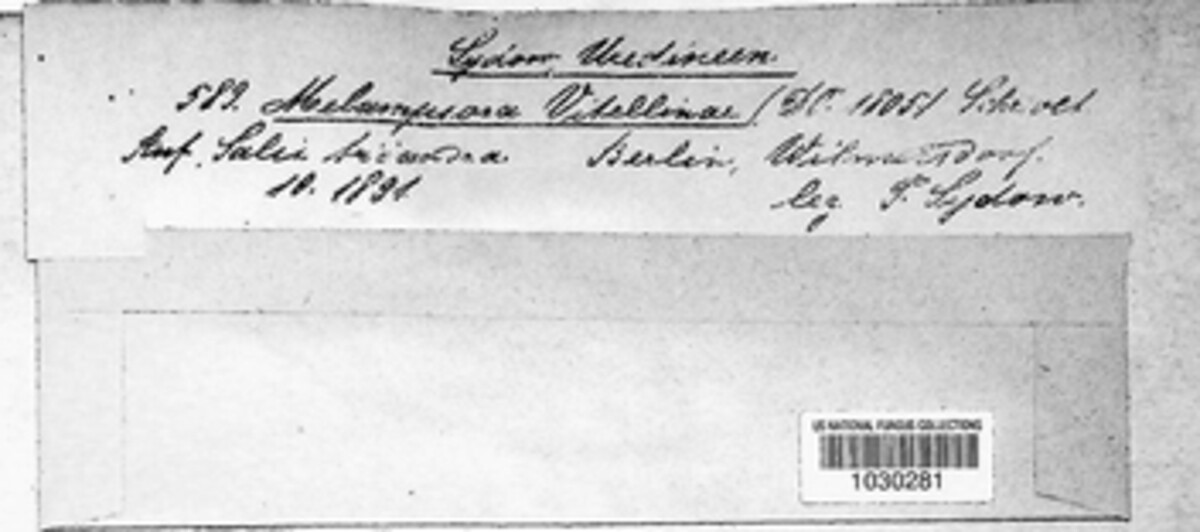 Sydow, Uredineen.
589. Melampsora Vitellinae (DC. 1805) Schroet
Auf Salix triandra. Berlin, Wilmersdorf.
10. 1891 leg. P. Sydow.
US NATIONAL FUNGUS COLLECTIONS
1030281